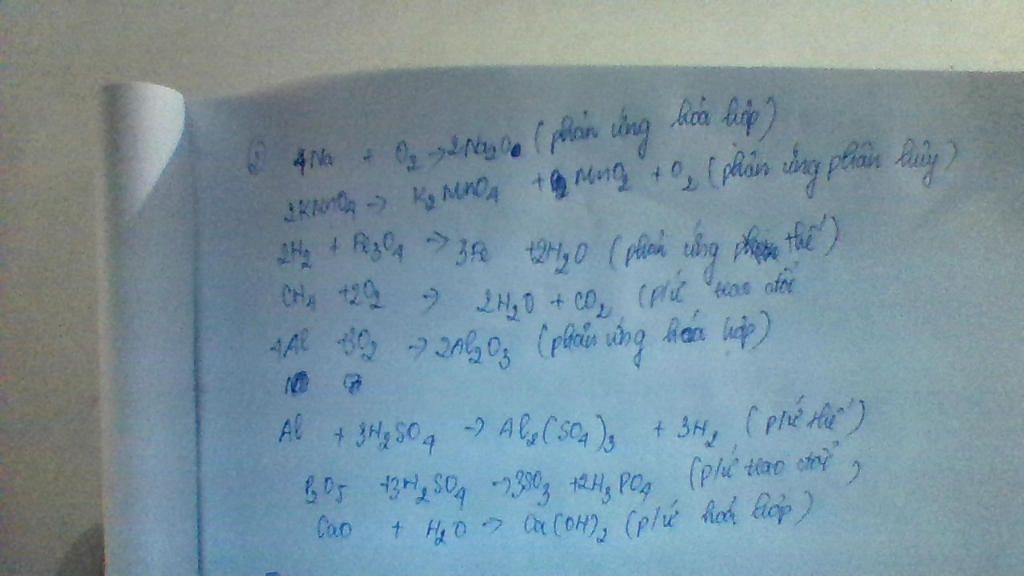 ② 4Na + O2 → 2Na2O (phản ứng hoá hợp)
2KMnO4 → K2MnO4 + MnO2 + O2 (phản ứng phân hủy)
2H2 + Fe3O4 → 3Fe + 2H2O (phản ứng thế)
CH4 + 2O2 → 2H2O + CO2 (p/ứ trao đổi
4Al + 3O2 → 2Al2O3 (phản ứng hoá hợp)
Al + 3H2SO4 → Al2(SO4)3 + 3H2 (p/ứ thế)
P2O5 + 3H2SO4 → 3SO3 + 2H3PO4 (p/ứ trao đổi)
CaO + H2O → Ca(OH)2 (p/ứ hoá hợp)